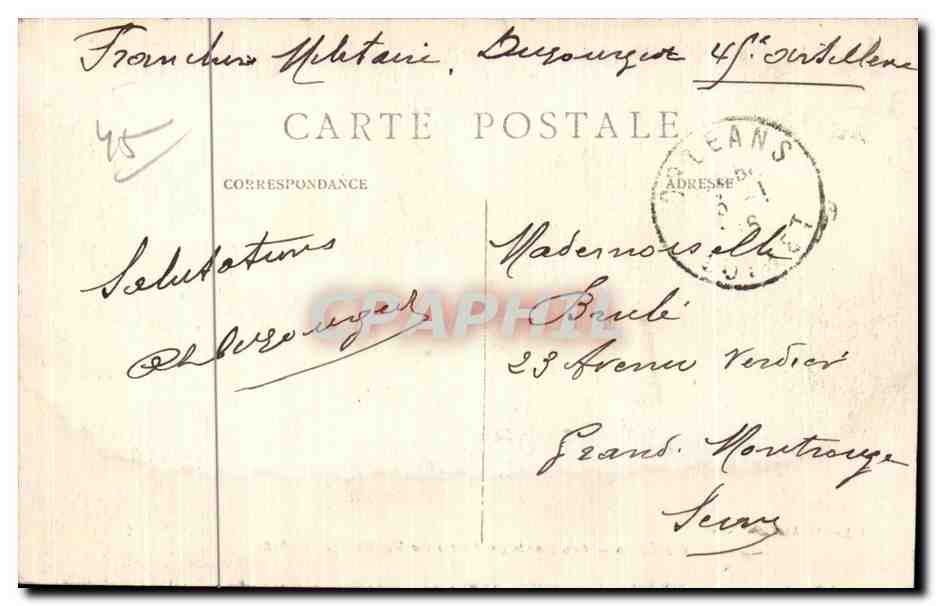 Franchise Militaire, Dugourgeot 45e artillerie
CARTE POSTALE
45
CORRESPONDANCE
ADRESSE
ORLEANS
LOIRET
Salutations
Mademoiselle
Brulé
23 Avenue Verdier
Grand. Montrouge
Seine
CPAPHIL